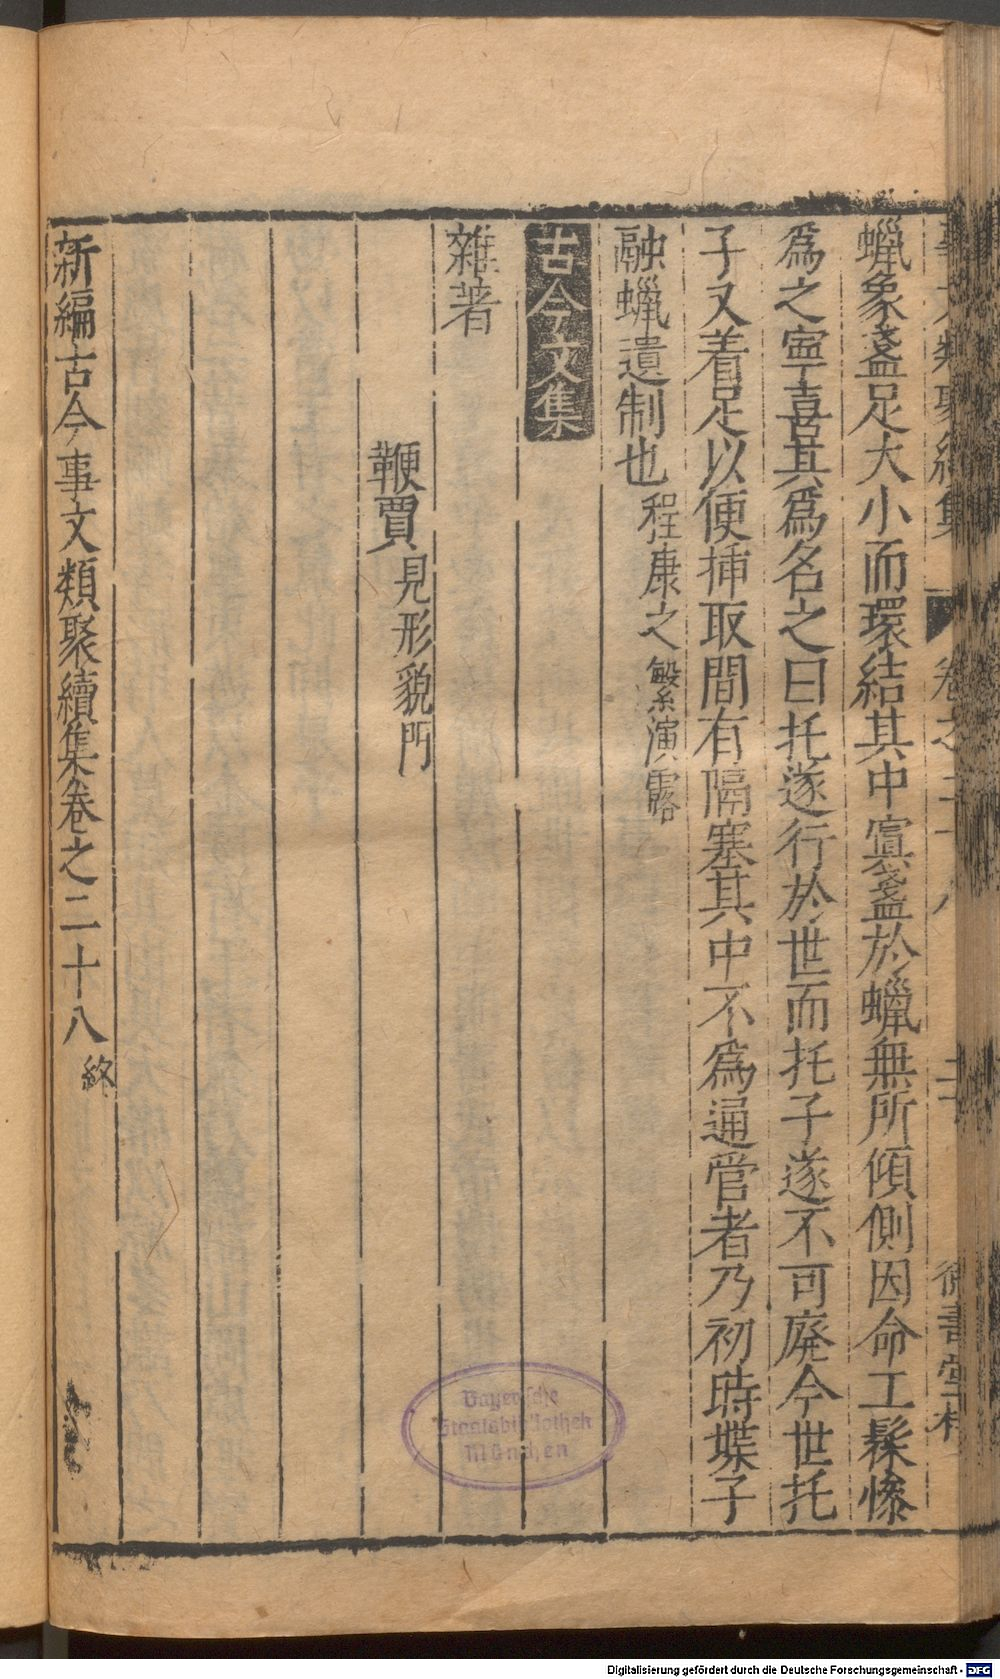 蠟象盞足大小而環結其中寘盞於蠟無所傾側因命工髹㯃
爲之寧喜其爲名之曰托遂行於世而托子遂不可廢今世托
子又着足以便挿取間有隔塞其中不爲通管者乃初時㸅子
融蠟遺制也 程康之 繁演露
古今文集
雜著
鞭賈 見形貌門
新編古今事文類聚續集卷之二十八 終
Bayerische
Staatsbibliothek
München
Digitalisierung gefördert durch die Deutsche Forschungsgemeinschaft - DFG